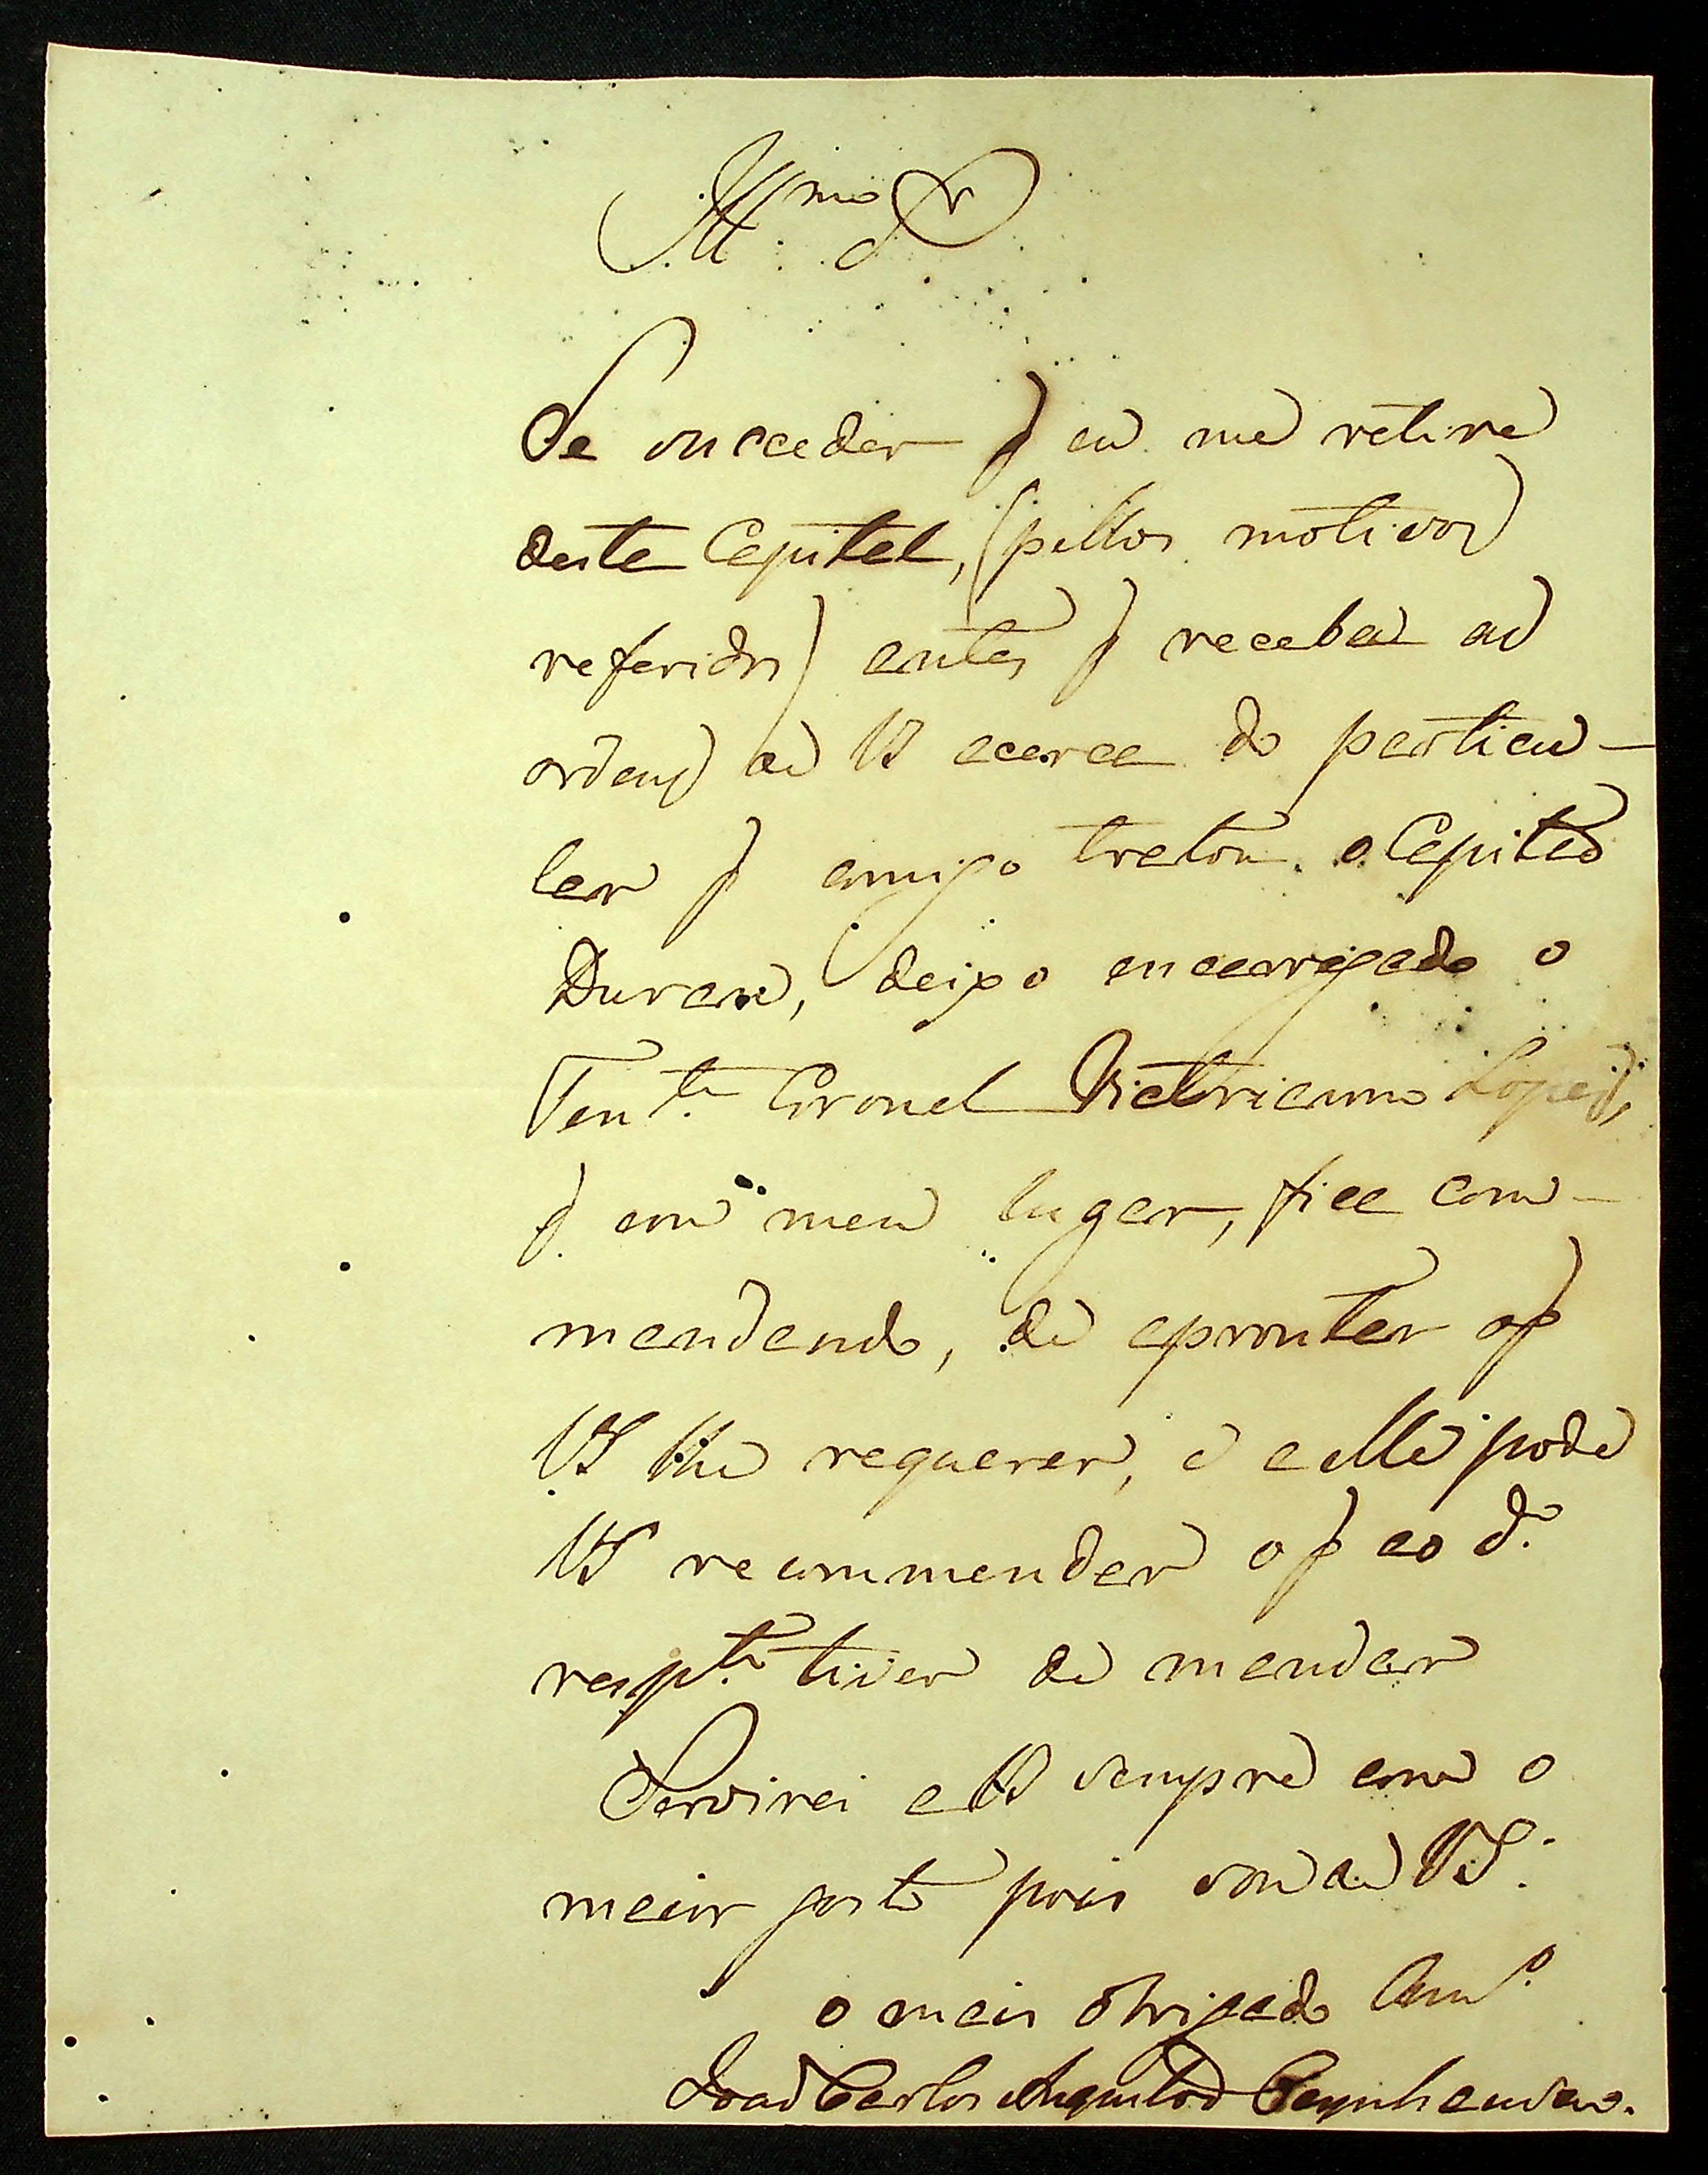 Ill.mo Sr
Se succeder q eu me retire
deste Capital, (pellos motivos
referidos) antes q receba as
ordens de VS acerca do particu-
lar q comigo tratou o Capitaõ
Duran, deixo encarregado o
Ten.te Coronel Victoriano Lopes,
q em meu lugar, fica com-
mandando, de apromter o q
VS lhe requerer, e a elle pode
VS recommendar o q ao d.o
resp.to tiver de mandar
Servirei a VS sempre com o
maior gosto pois sou de VS.
o mais obrigado Am.o
Joaõ Carlos Augusto d'Oeynhausen.